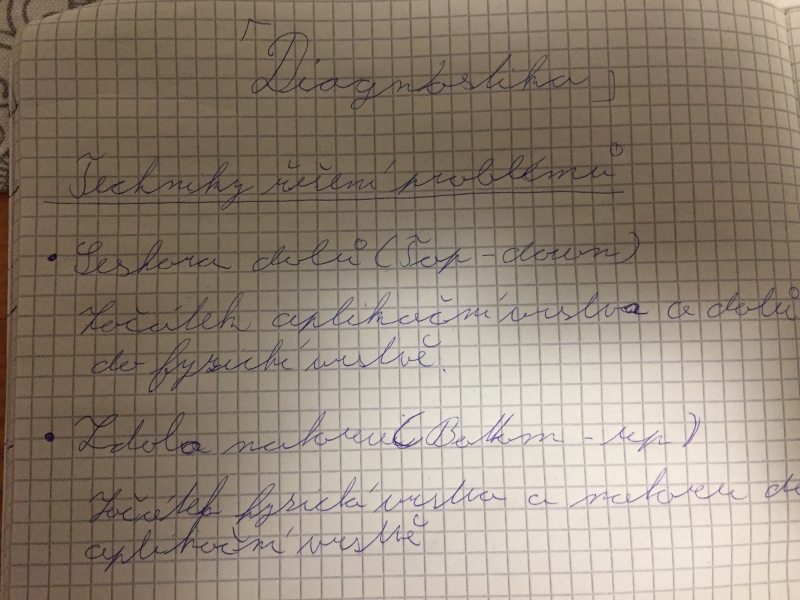 Diagnostika
Techniky řešení problémů
• Seshora dolů (Top-down)
Začátek aplikační vrstva a dolů
do fyzické vrstvě.
• Zdola nahoru (Bottom-up)
Začátek fyzická vrstva a nahoru do
aplikační vrstvě